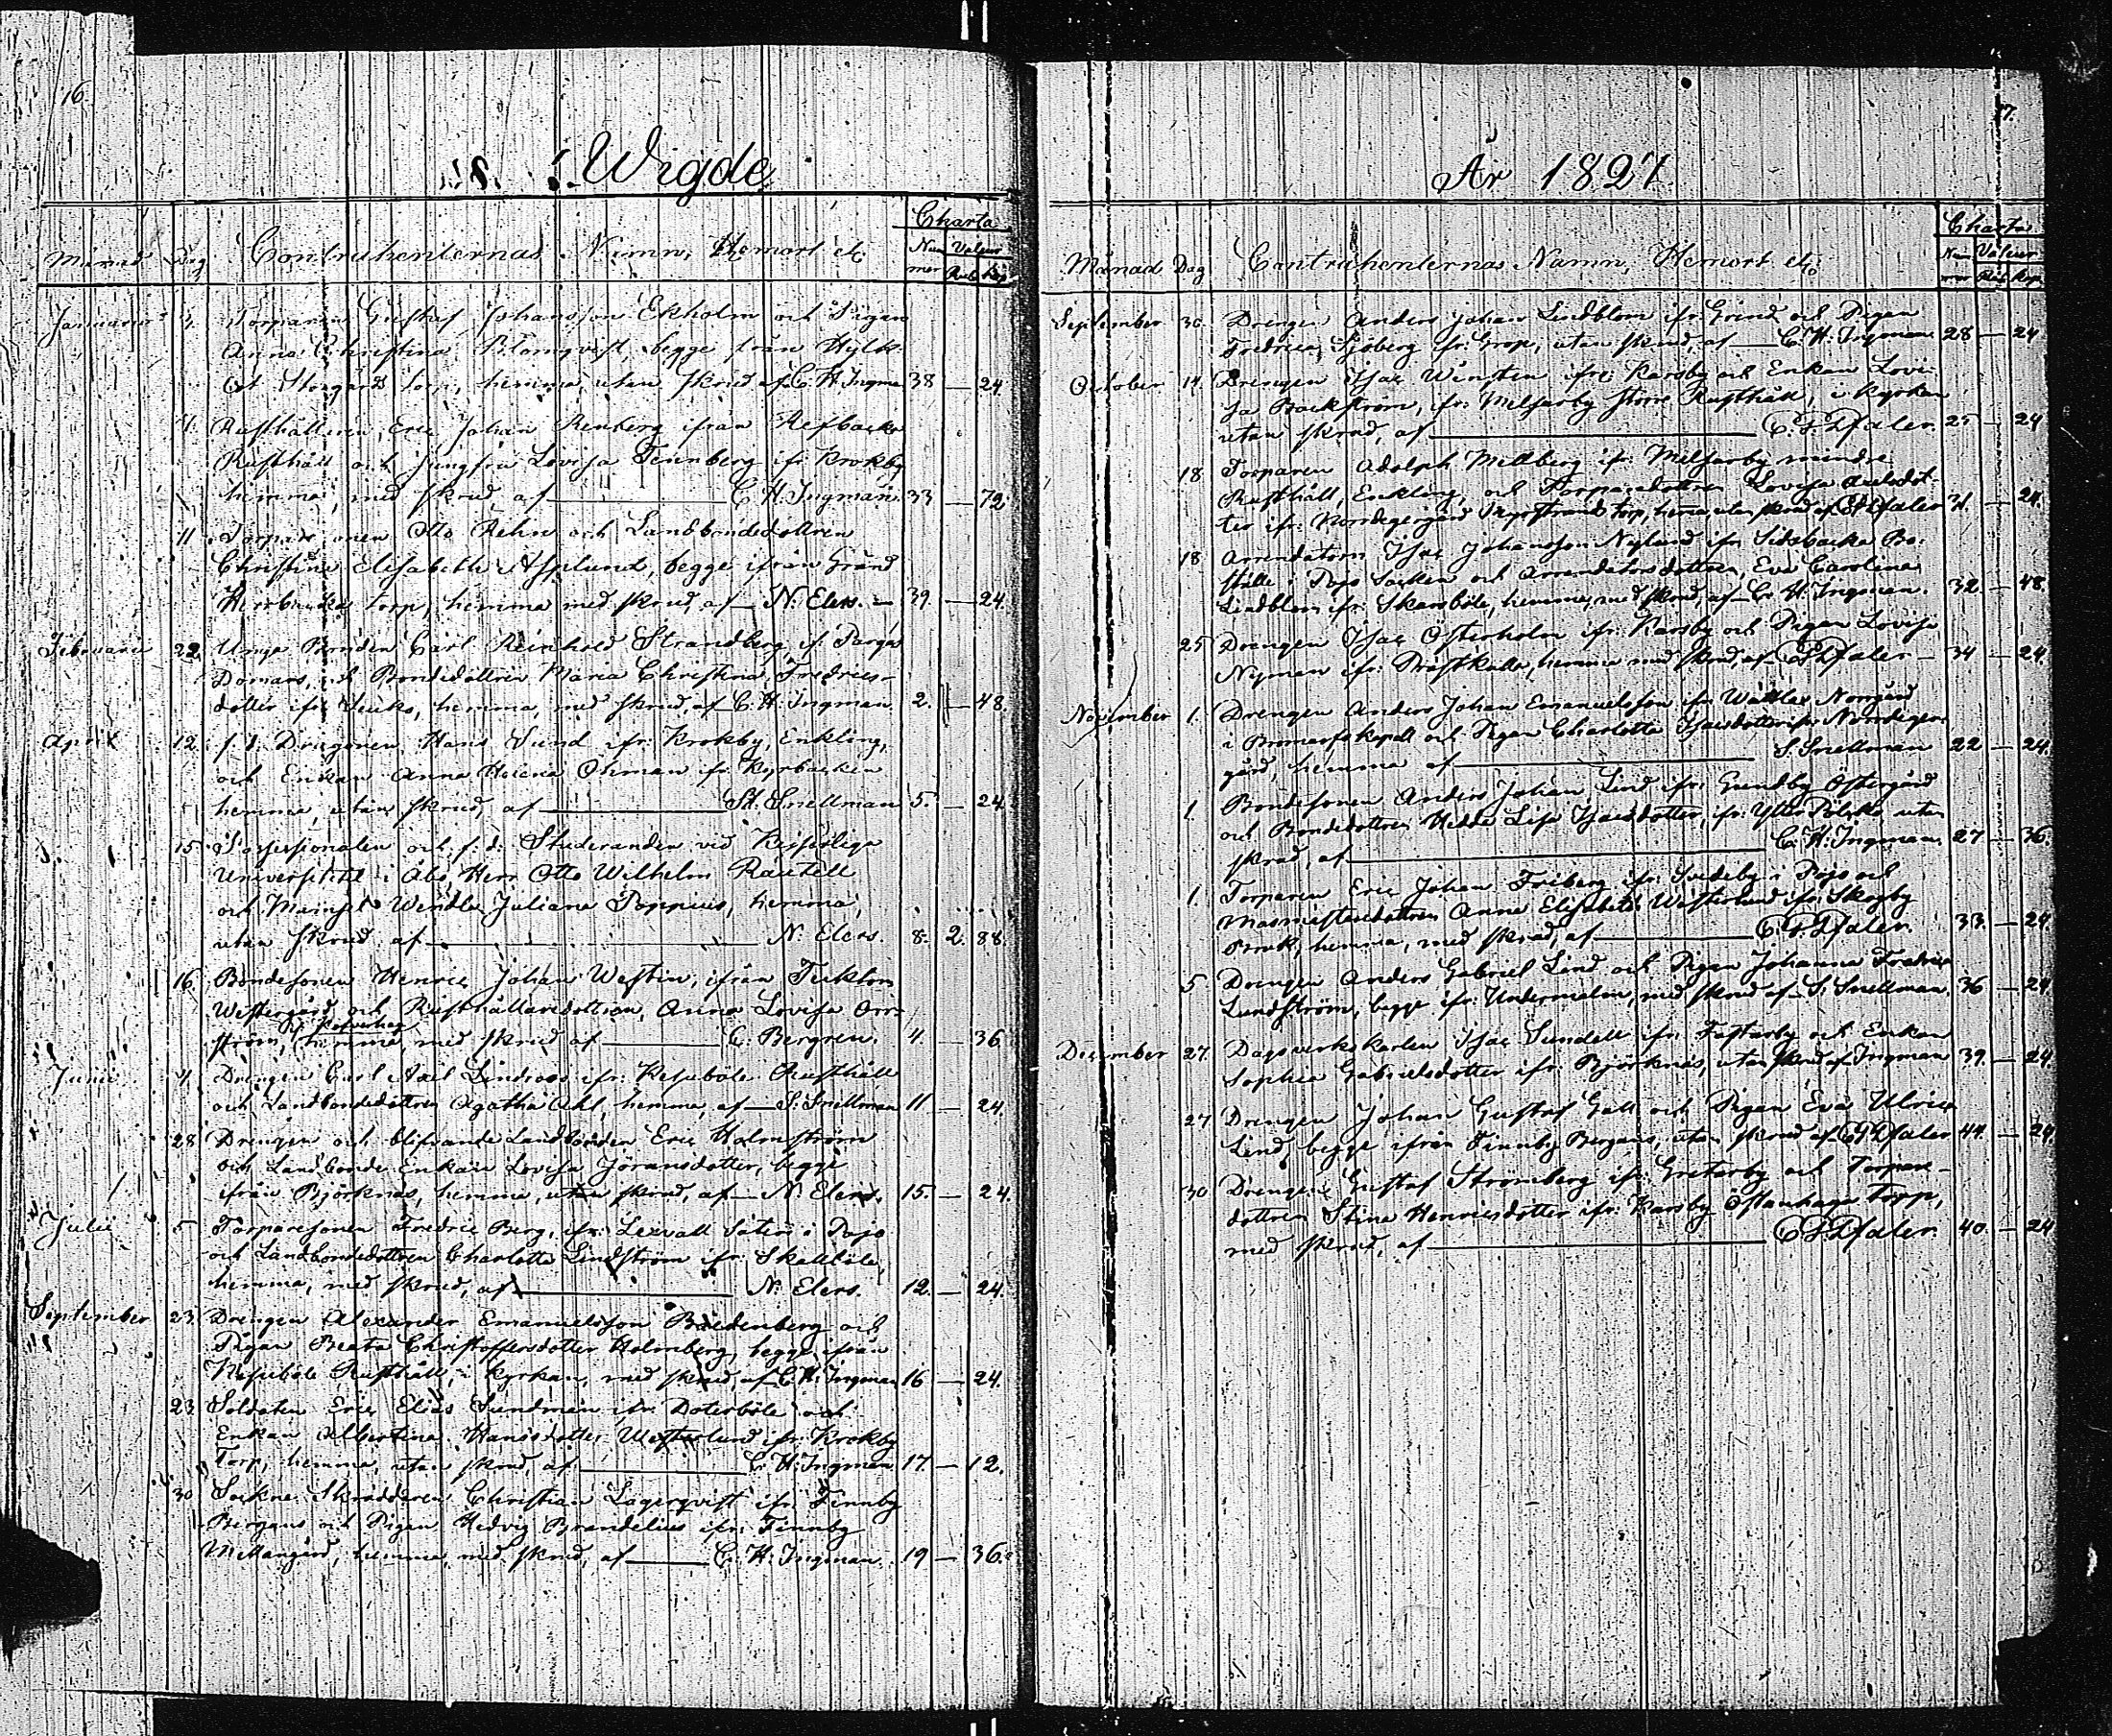 16
Wigde
Charta
Månad Dag Contrahenternas Namn, Hemort etc. Num Valeur
mer Rub. Kop.
Januarius 4. Torparen Gustaf Johansson Ekholm och Pigan
Anna Christina Blomqvist, begge från
torp, hemma utan skrud af C. H. Ingma 38 — 24.
11. Rusthållaren Eric Johan Renberg ifrån Refbacka
Rusthåll och Jungfru Lovisa Tennberg ifr. Krokby
hemma, med skrud af — C. H. Ingman. 33 — 72
11. Otto Rehn och Landbondedottren
Christina Elisabeth Asplund, begge ifrån Gränd
torp, hemma med skrud, af — N. Elers. — 39. — 24.
Februarii 22. Unga Bonden Carl Reinhold Strandberg, if. Pargas
Domars, och Bondedottren Maria Christina Fredrics-
dotter ifr. hemma, med skrud, af C. H. Ingman. 2. — 48.
April 12. f. d. Dragonen Hans Sund ifr. Krokby, Enkling,
och Enkan Anna Helena Öhman fr. Kyrbacken
hemma, utan skrud, af — St. Snellman 5. — 24.
15. och f. d. Studeranden vid Kejserliga
Universitetet i Åbo Herr Otto Wilhelm
och Wendla Juliana Poppius, hemma,
utan skrud af — N. Elers. 8. 2. 88.
16. Bondesonen Henric Johan Westin, ifrån
Westergård och Rusthållaredottren, Anna Lovisa Orr-
ström, hemma, med skrud af — C. Bergren. 4. — 36
Junii 4. Drengen Carl Axel Lindroos ifr. Kesuböle Rusthåll
och Landbondedottren Agatha Ahl, hemma, af — S. Snellman 11 — 24.
28 Drengen och blifvande Landbonden Eric Holmström
och Landbonde Enkan Lovisa Jöransdotter, begge
ifrån Björknäs, hemma, utan skrud, af — N. Elers. 15. — 24.
Julii 5 Torparesonen Fredric Berg, ifr. Lexvall Säteri i Pojo
och Landbondedottren Charlotta Lindström ifr. Skallböle,
hemma, med skrud, af — N. Elers. 12. — 24.
September 23. Drengen Alexander Emanuelsson Bredenberg och
Pigan Beata Christoffersdotter Holmberg, begge ifrån
Kesuböle Rusthåll, i kyrkan, med skrud, af C. H. Ingman 16 — 24.
23. Soldaten Eric Elias Sundman ifr. Doterböle och
Enkan Albertina Hansdotter Westerlund ifr. Krokby
Torp, hemma, utan skrud, af — C. H. Ingman 17. — 12.
30 Sockne Skräddaren Christian Lagerqvist ifr. Finnby
Bergans och Pigan Hedvig Brandelius ifr. Finnby
Mellangård, hemma, med skrud, af — C. H. Ingman. 19 — 36.
17.
År 1827
Charta
Månad Dag Contrahenternas Namn, Hemort etc. Num Valeur
mer Rub. Kop.
September 30. Drengen Anders Johan Lindblom ifr. Grind och Pigan
Fredrica Sjöberg fr. Grop, utan skrud, af — C. H. Ingman. 28 — 24
October 14. Drengen Isac Winsten ifr. Karsby och Enkan Lovi-
sa Backström, ifr. Melsarby större Rusthåll, i kyrkan
utan skrud, af — C. F. Pfaler. 25 — 24
18. Torparen Adolph Mellberg ifr. Melsarby mindre
Rusthåll, Enkling, och Torparedottren Lovisa Axelsdot-
ter ifr. Norrdegergård torp, hemma, utan skrud af C. F. Pfaler 31. — 24.
18. Arrendatorn Isac Johansson Nylund ifr. Sidsbacka Bo-
ställe i Pojo Socken och Arrendators dottren Eva Carolina
Lindblom ifr. Skarsböle, hemma, med skrud, af C. H. Ingman. 32. — 48.
25 Drengen Isac Österholm ifr. Karsby och Pigan Lovisa
Nyman ifr. Prästkulla, hemma med skrud, af C. F. Pfaler — 34 — 24.
November 1. Drengen Anders Johan Emanuelsson ifr. Norrgård
i Bromarfs kapell och Pigan Charlotta Isacsdotter ifr. Norrdeger-
gård, hemma af — S. Snellman 22 — 24.
1. Bondesonen Anders Johan Lind ifr. Gundby Östergård
och Bondedottren Hedda Lisa Isacsdotter, ifr. Ytter Pölskö utan
skrud, af — C. H. Ingman. 27 — 36.
1. Torparen Eric Johan Friberg ifr. Svedeby i Pojo och
Masmästaredottren Anna Elisabeth Westerlund ifr. Skogby
Bruk, hemma, med skrud, af — C. F. Pfaler. 33. — 24.
5 Drengen Anders Gabriel Lind och Pigan Johanna Fredrica
Lundström, begge ifr. Undermalm, med skrud af S. Snellman. 36 — 24
December 27. Dagsverkskarlen Isac Sundell ifr. Fastarby och Enkan
Sophia Gabrielsdotter ifr. Björknäs, utan skrud af Ingman 39. — 24.
27 Drengen Johan Gustaf Gall och Pigan Eva Ulrica
Lind, begge ifrån Finnby Bergans, utan skrud af C. F. Pfaler 44. — 24.
30 Drengen Gustaf Strömberg ifr. Gretarby och Torpare-
dottren Stina Henricsdotter ifr. Karsby Östanhaga Torp,
med skrud, af — C. F. Pfaler. 40. — 24